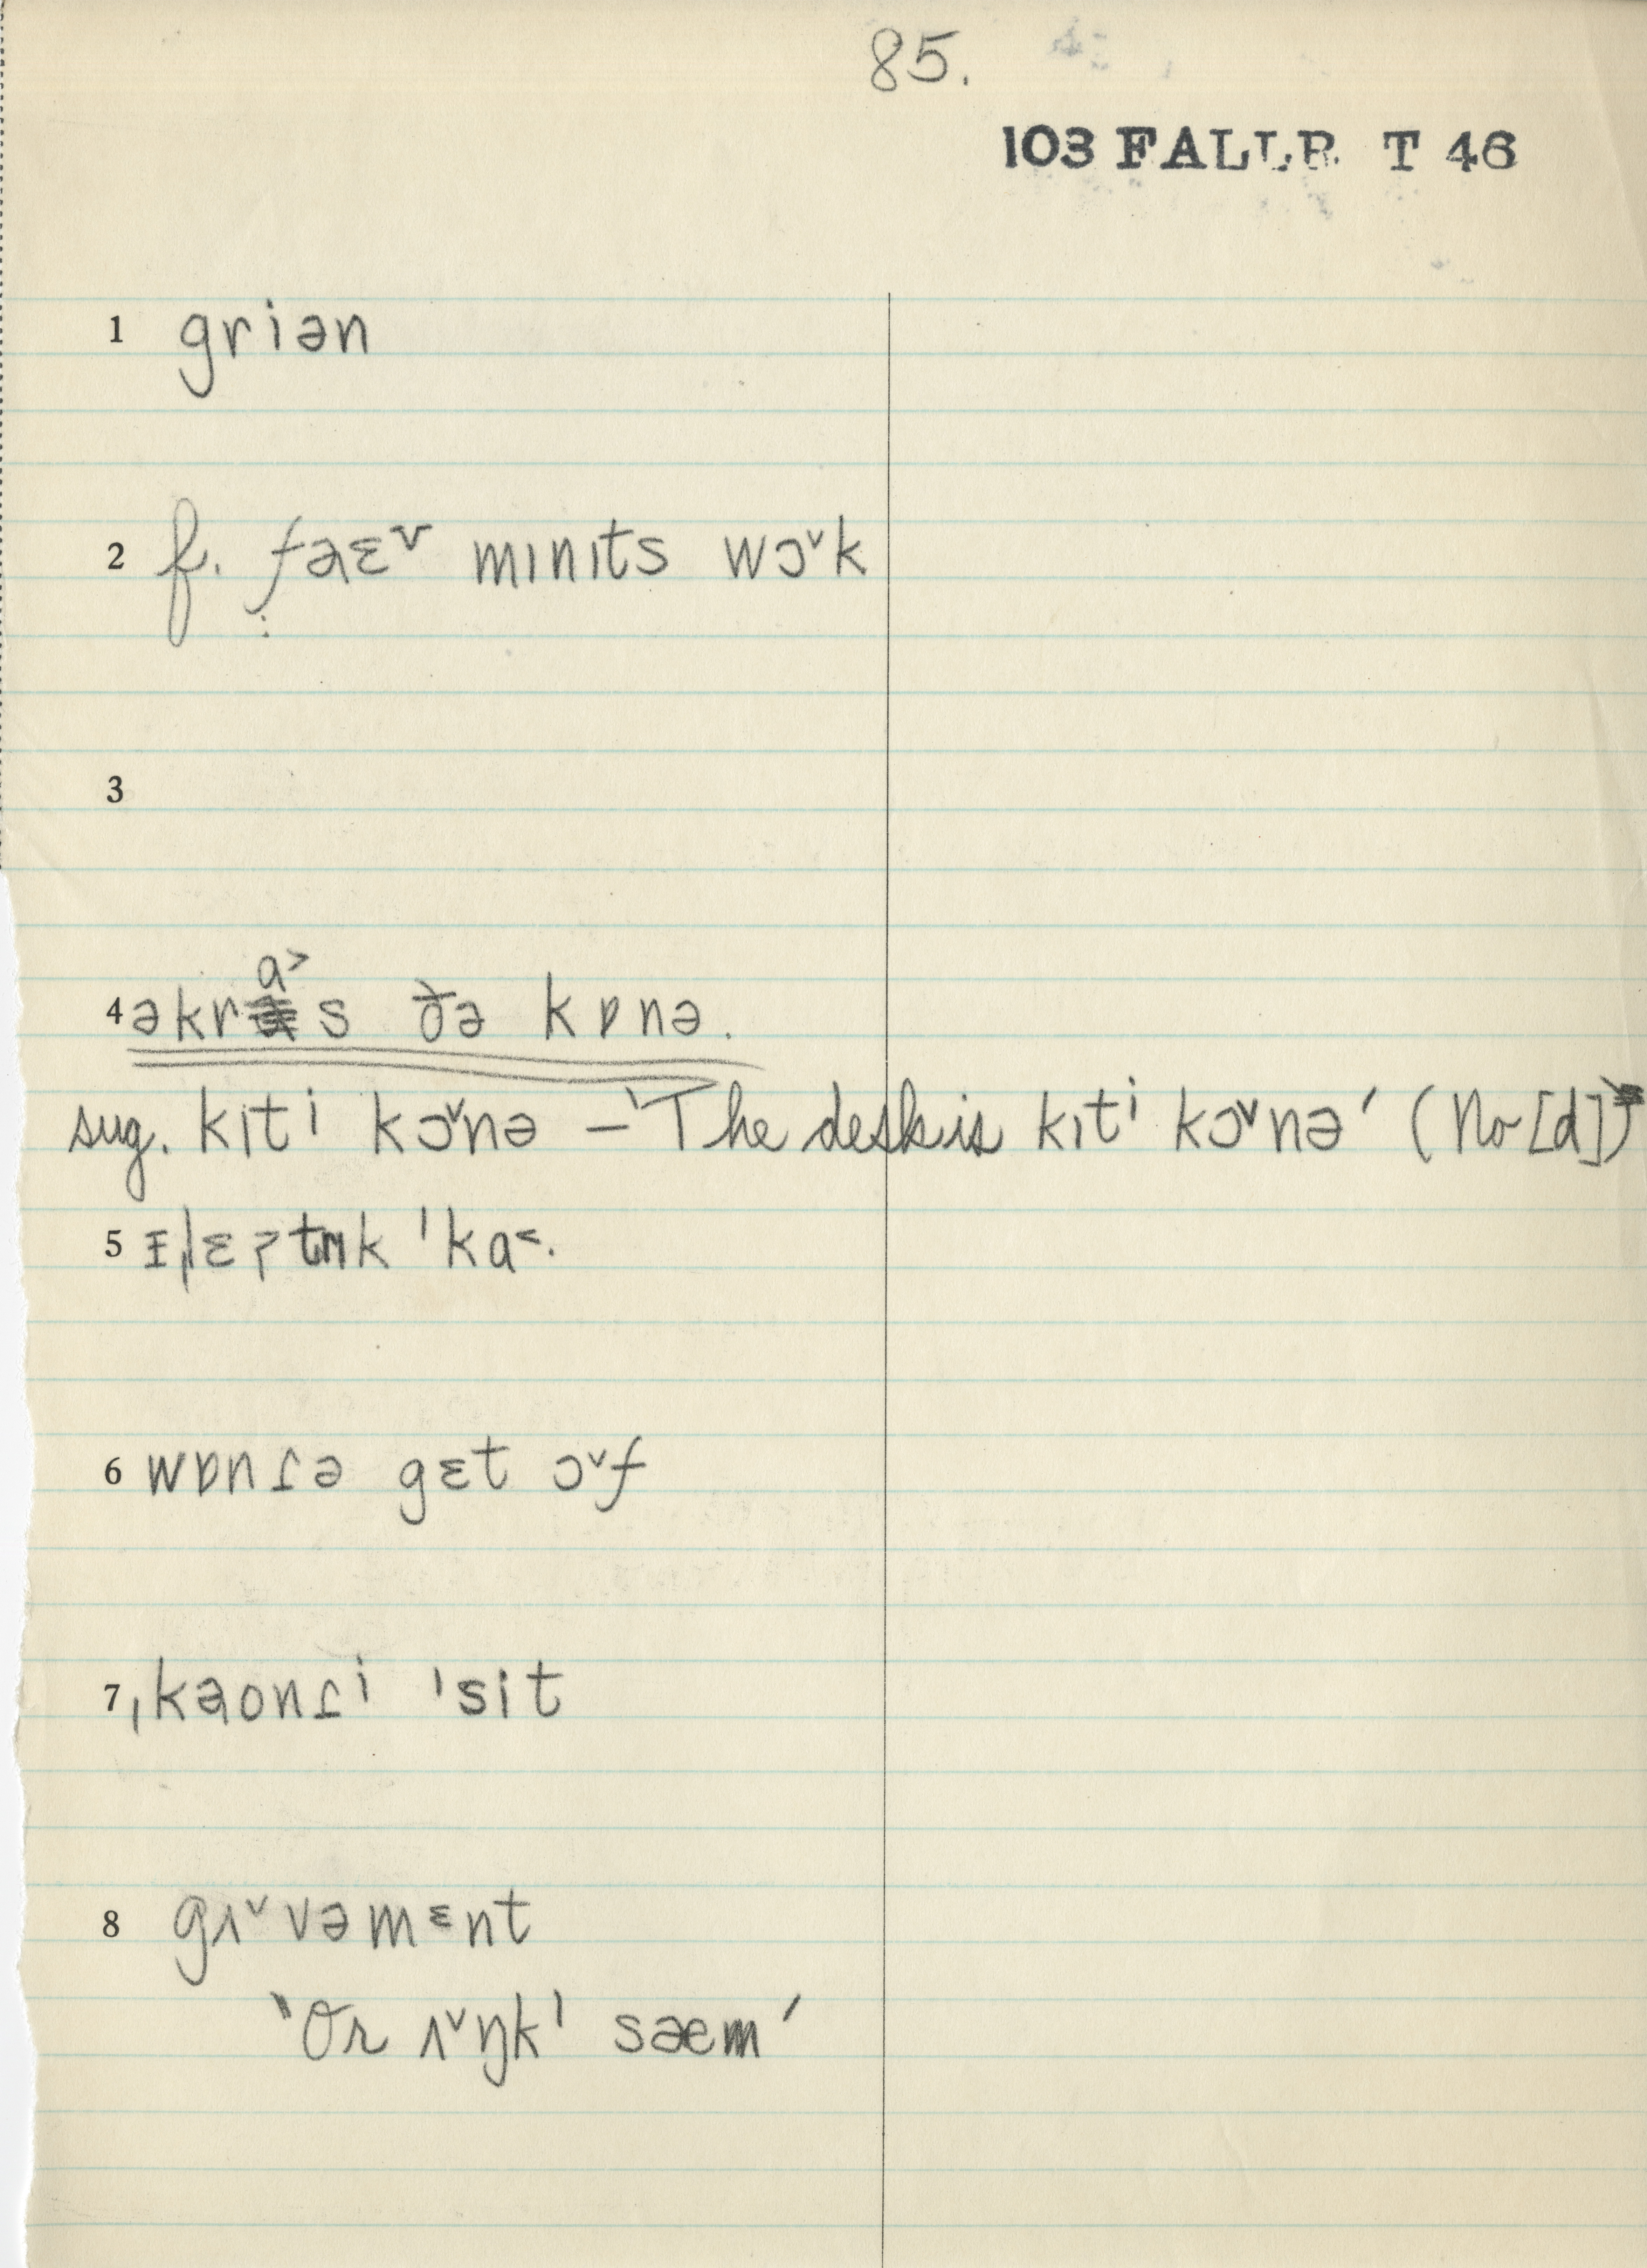 85.
103 FALLR T 46
1 griən
2 f. faɛ˅ mɪnɪts wɔ˅k
3
4 əkrɑ˃s ðə kɒnə.
sug. kɪti kɔ˅nə – 'The desk is kɪti kɔ˅nə' (No [d])
5 ɪˌlɛɾtrɪk ˈkɑ˂.
6 wɒnɾə gɛt ɔ˅f
7 ˌkaonɾi ˈsit
8 gʌ˅vəmɛnt
'Or ʌ˅ŋkl sæem'